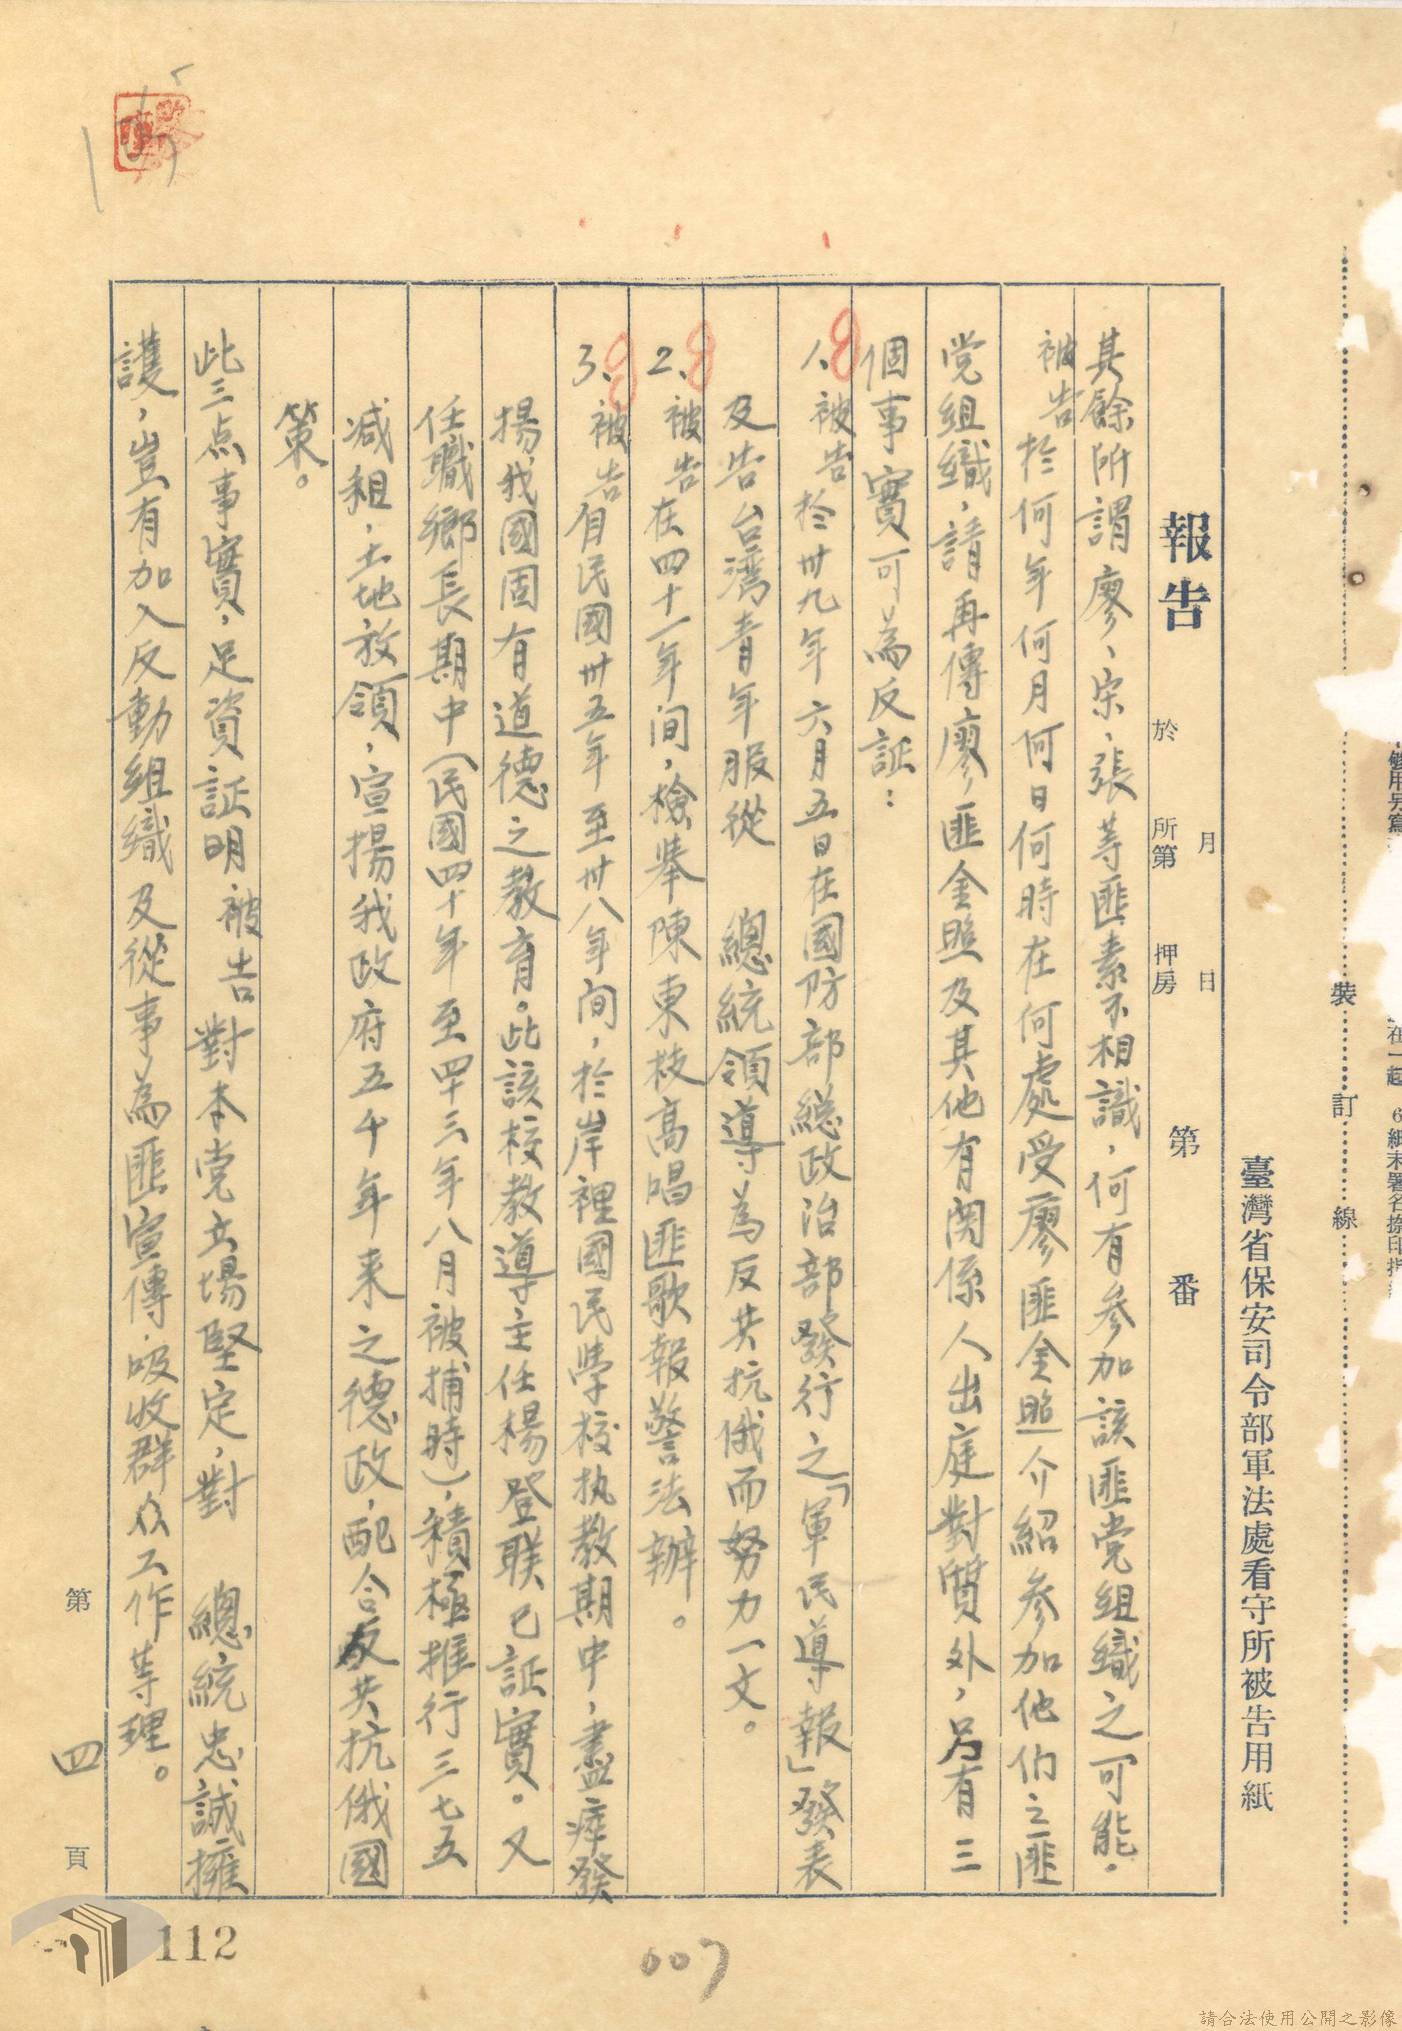 臺灣省保安司令部軍法處看守所被告用紙
報告
月
日
於
所第
押房
第
番
其餘所謂廖、宗、張等匪素不相識，何有參加該匪党組織之可能，
被告於何年何月何日何時在何處受廖匪金照介紹参加他們之匪
党組織，請再傳廖匪金照及其他有関係人出庭對質外，另有三
個事實可為反証：
1、被告於卅九年六月五日在國防部總政治部發行之「軍民導報」發表
及告台湾青年服從　總統領導為反共抗俄而努力一文。
2、被告在四十一年间，檢舉陳東枝高唱匪歌報警法辦。
3、被告自民國卅五年至卅八年间，於岸裡國民學校执教期中，盡瘁發
揚我國固有道德之教育。此該校教導主任楊登联已証實。又
任職鄉長期中（民國四十年至四十三年八月被捕時），積極推行三七五
减租，土地放領，宣揚我政府五千年来之德政，配合反共抗俄國
策。
此三点事實，足資証明被告對本党立場堅定，對　總統忠誠擁
護，豈有加入反動組織及從事為匪宣傳，吸收群众工作等理。
第
四
頁
裝
訂
線
112
007
請合法使用公開之影像